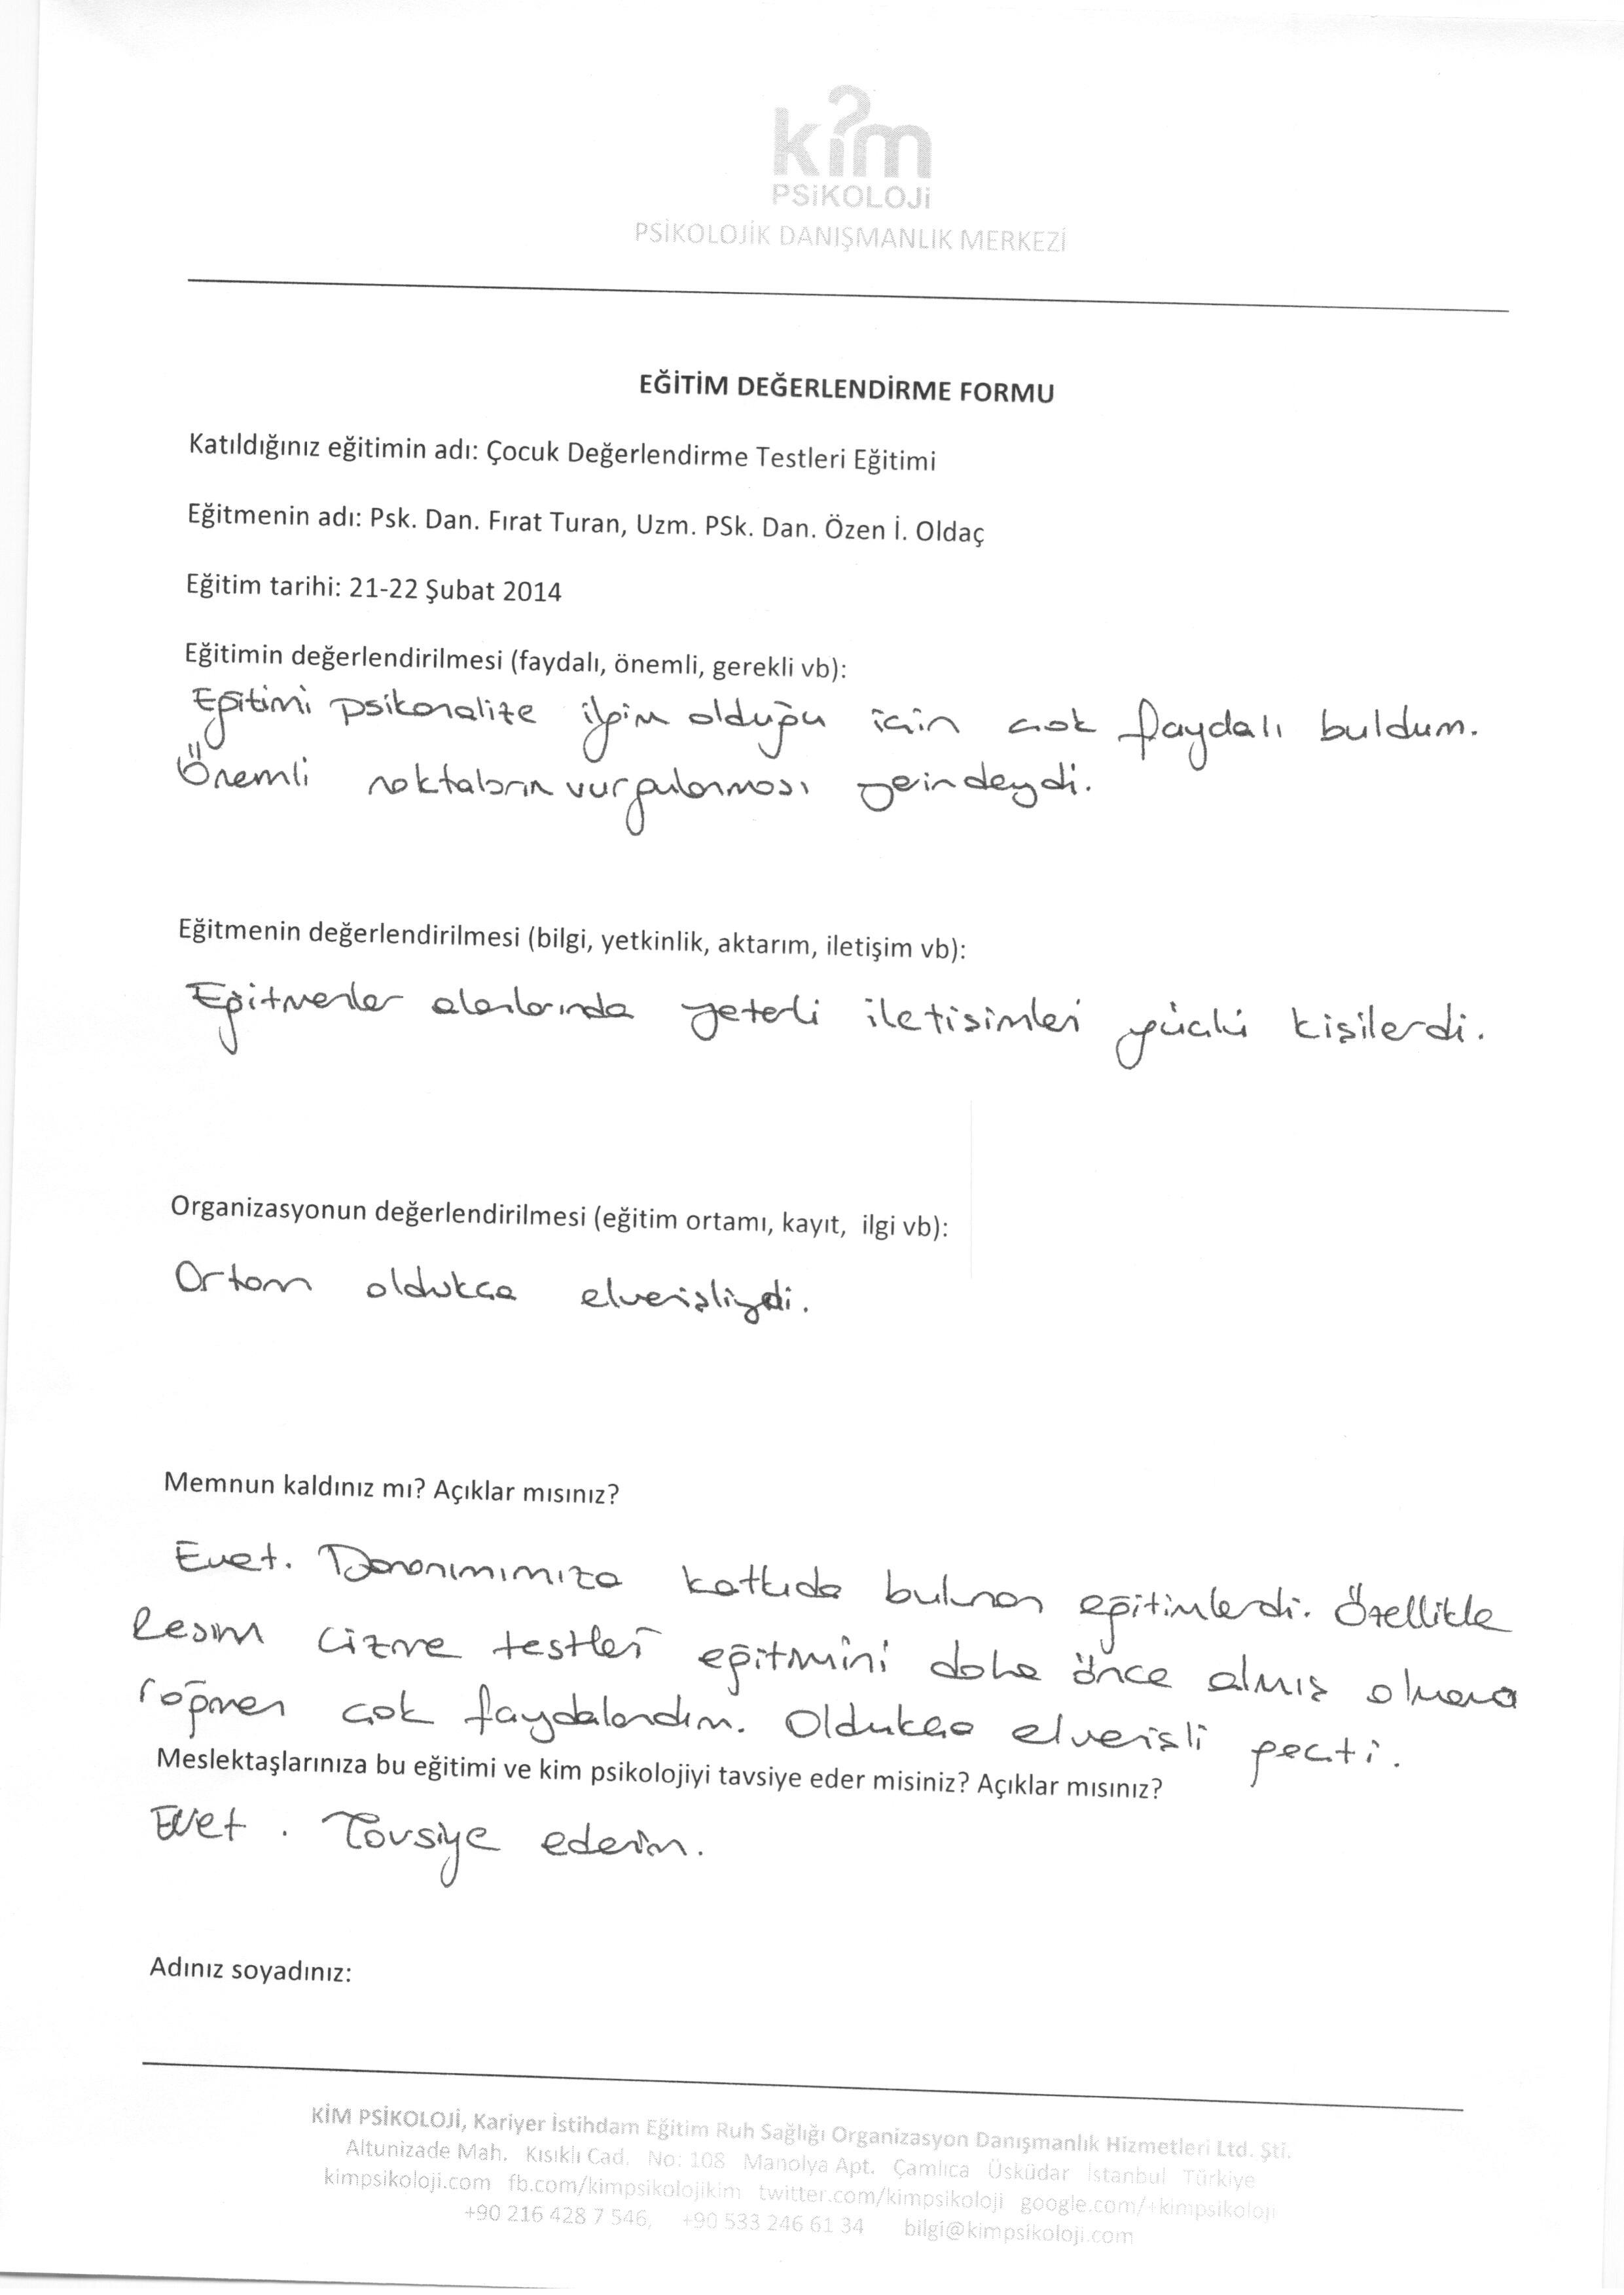 kim
PSiKOLOJi
PSİKOLOJİK DANIŞMANLIK MERKEZİ
EĞİTİM DEĞERLENDİRME FORMU
Katıldığınız eğitimin adı: Çocuk Değerlendirme Testleri Eğitimi
Eğitmenin adı: Psk. Dan. Fırat Turan, Uzm. PSk. Dan. Özen İ. Oldaç
Eğitim tarihi: 21-22 Şubat 2014
Eğitimin değerlendirilmesi (faydalı, önemli, gerekli vb):
Eğitimi psikanalize ilgim olduğu için çok faydalı buldum.
Önemli noktaların vurgulanması yerindeydi.
Eğitmenin değerlendirilmesi (bilgi, yetkinlik, aktarım, iletişim vb):
Eğitmenler alanlarında yeterli iletişimleri güçlü kişilerdi.
Organizasyonun değerlendirilmesi (eğitim ortamı, kayıt, ilgi vb):
Ortam oldukça elverişliydi.
Memnun kaldınız mı? Açıklar mısınız?
Evet. Donanımımıza katkıda bulunan eğitimlerdi. Özellikle
Resim çizme testleri eğitmini daha önce almış olmama
rağmen çok faydalandım. Oldukça elverişli geçti.
Meslektaşlarınıza bu eğitimi ve kim psikolojiyi tavsiye eder misiniz? Açıklar mısınız?
Evet. Tavsiye ederim.
Adınız soyadınız:
KİM PSİKOLOJİ, Kariyer İstihdam Eğitim Ruh Sağlığı Organizasyon Danışmanlık Hizmetleri Ltd. Şti.
Altunizade Mah. Kısıklı Cad. No: 108 Manolya Apt. Çamlıca Üsküdar İstanbul Türkiye
kimpsikoloji.com fb.com/kimpsikolojikim twitter.com/kimpsikoloji google.com/+kimpsikoloji
+90 216 428 7 546, +90 533 246 61 34 bilgi@kimpsikoloji.com